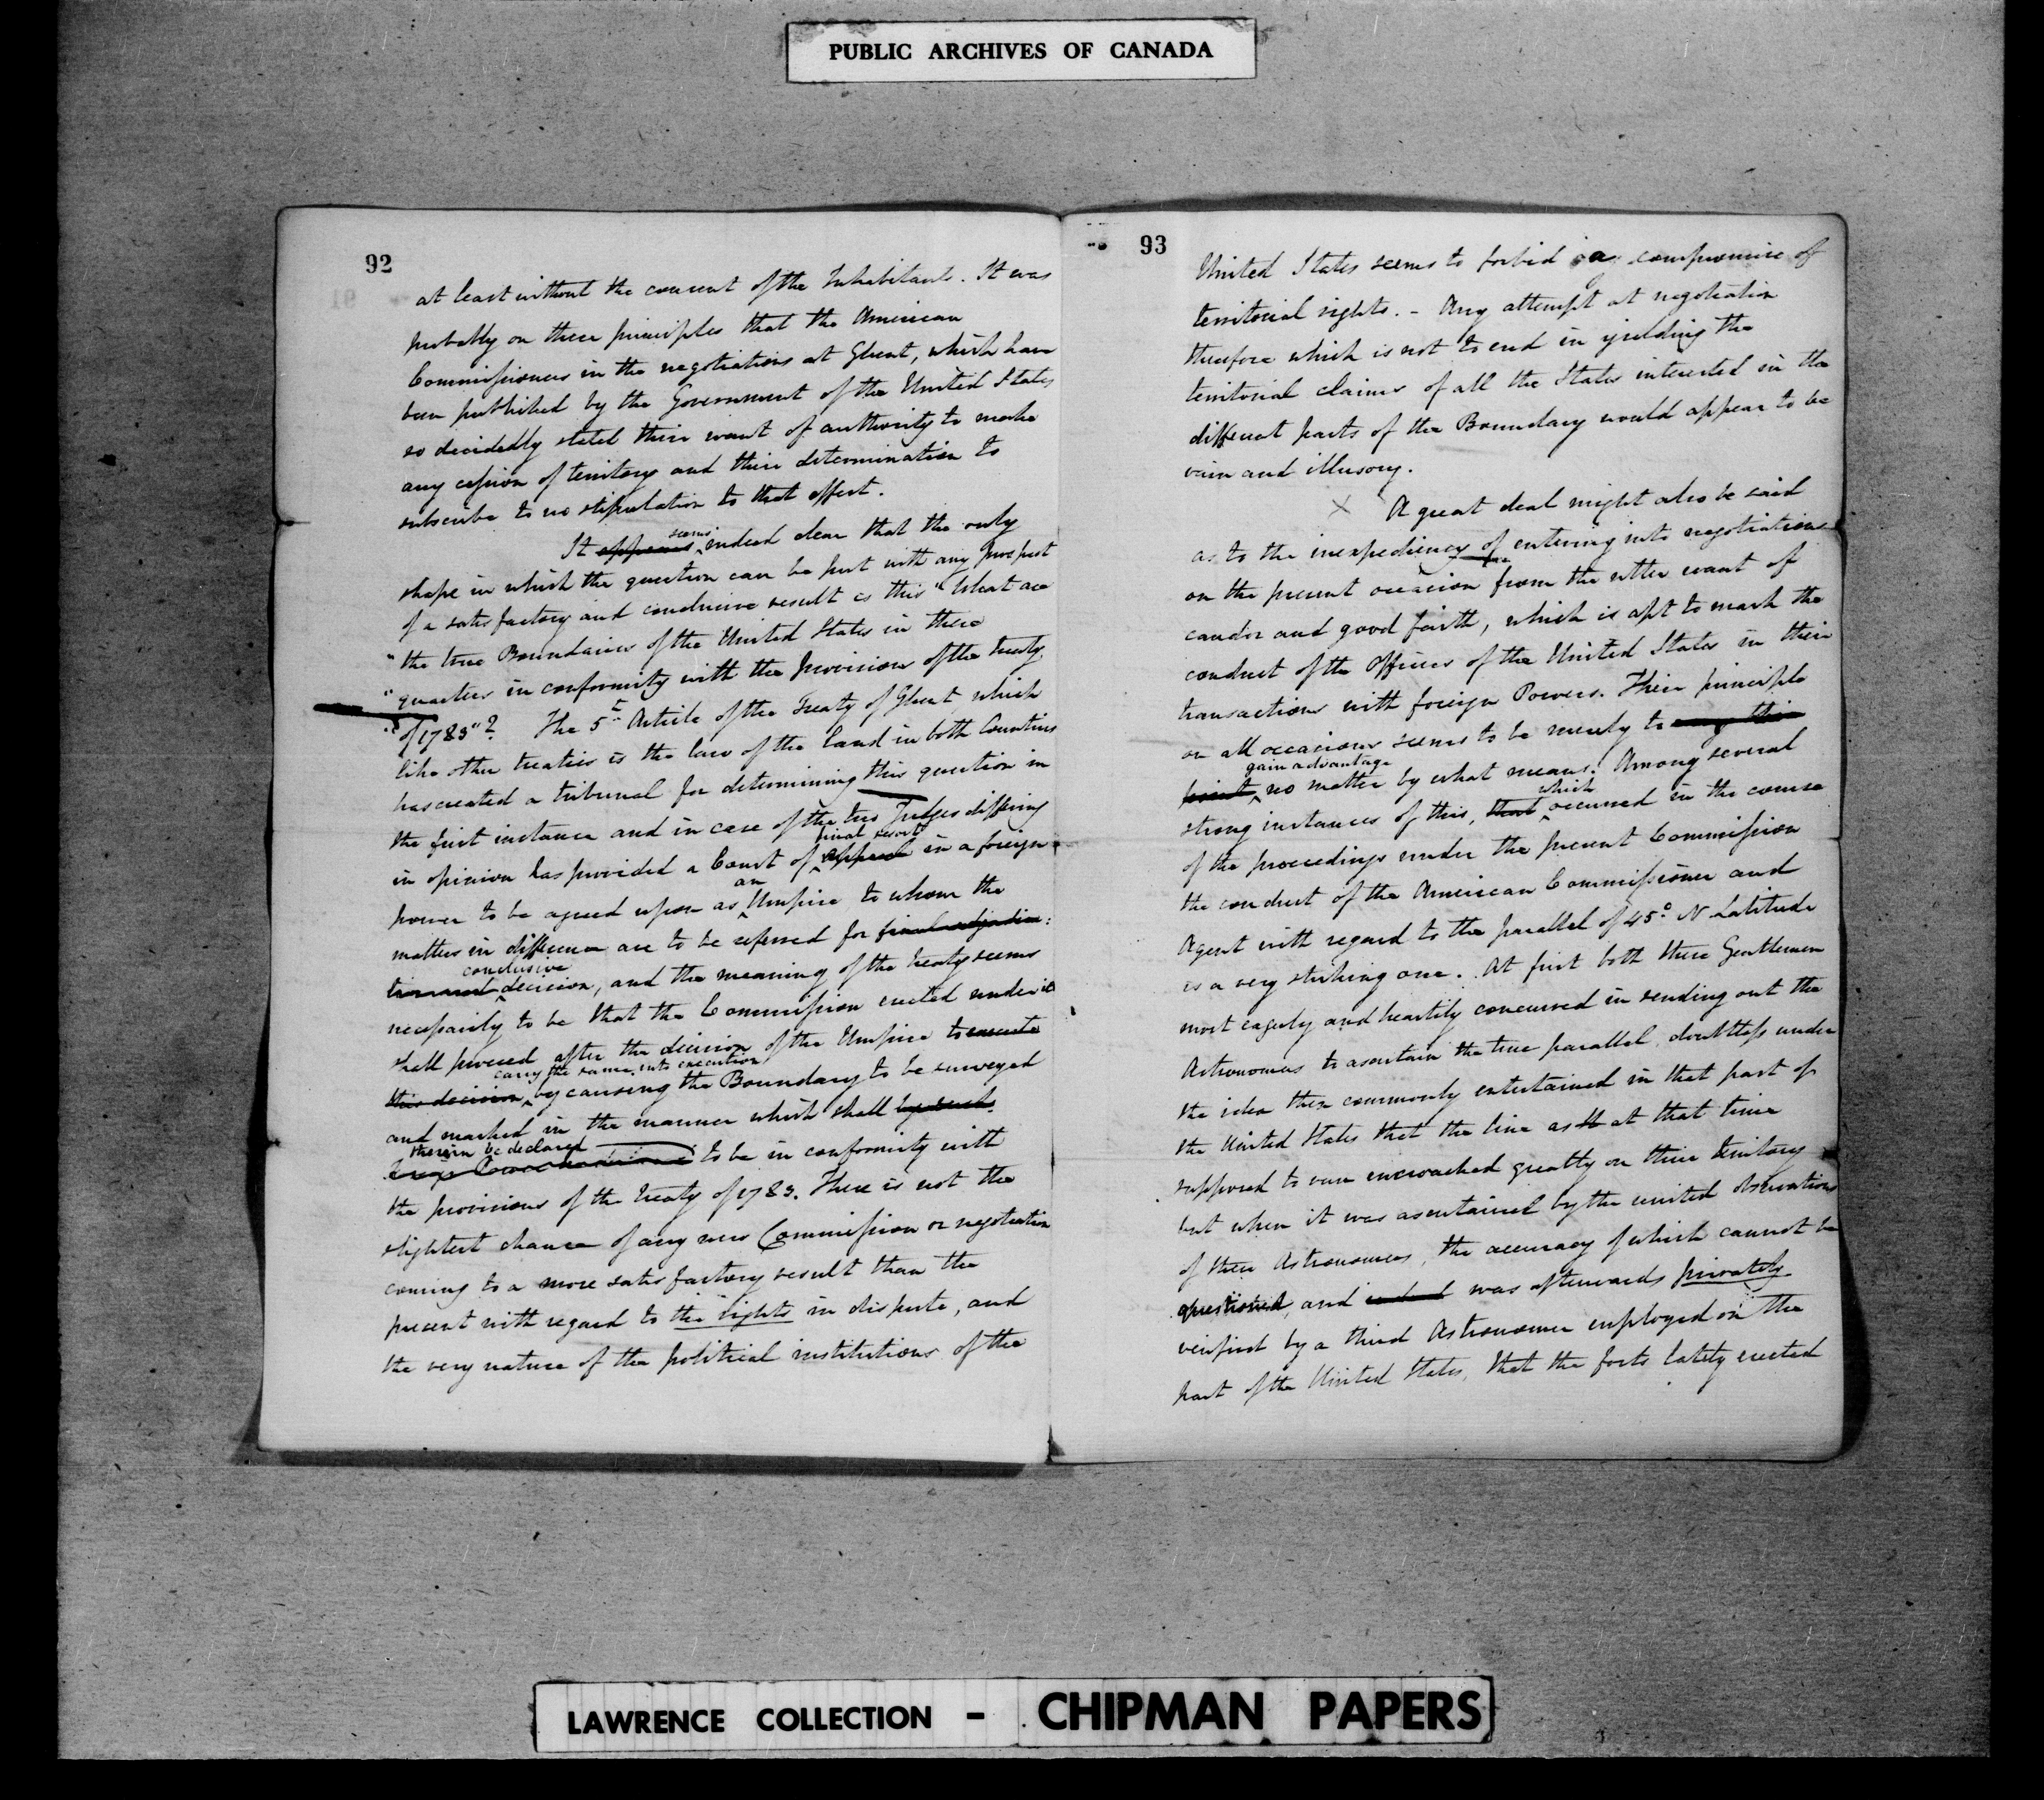 PUBLIC ARCHIVES OF CANADA
92
at least without the consent of the Inhabitants. It was
probably on these principles that the American
Commissioners in the negotiations at Ghent, which have
been published by the Government of the United States
so decidedly stated their want of authority to make
any cession of territory and their determination to
subscribe to no stipulation to that effect.
seems
It appears indeed clear that the only
shape in which the question can be put with any prospect
of a satisfactory and conclusive result is this "What are
"the true Boundaries of the United States in these
"quarters in conformity with the provisions of the treaty
"of 1783"? The 5th Article of the Treaty of Ghent, which
like other treaties is the law of the land in both Countries
has created a tribunal for determining this question in
the first instance and in case of the two Judges differing
final resort
in opinion has provided a Court of appeal in a foreign
an
power to be agreed upon as Umpire to whom the
matters in difference are to be referred for final adjudica:
conclusive
tion and decision, and the meaning of the treaty seems
necessarily to be that the Commission erected under it
shall proceed after the decision of the Umpire to execute
carry the same into execution
this decision by causing the Boundary to be surveyed
and marked in the manner which shall
therein be declared
to be in conformity with
the provisions of the treaty of 1783. There is not the
slightest chance of any new Commission or negotiation
coming to a more satisfactory result than the
present with regard to the rights in dispute, and
the very nature of the political institutions of the
93
United States seems to forbid a compromise of
territorial rights. - Any attempt at negotiation
therefore which is not to end in yielding the
territorial claims of all the States interested in the
different parts of the Boundary would appear to be
vain and illusory.
X A great deal might also be said
as to the inexpediency of entering into negotiations
on the present occasion from the utter want of
candor and good faith, which is apt to mark the
conduct of the Officers of the United States in their
transactions with foreign Powers. Their principle
on all occasions seems to be merely to carry their
gain advantage
point no matter by what means. Among several
which
strong instances of this, that occurred in the course
of the proceedings under the present Commission
the conduct of the American Commissioner and
Agent with regard to the parallel of 45° N Latitude
is a very striking one. At first both these Gentlemen
most eagerly and heartily concurred in sending out the
Astronomers to ascertain the true parallel, doubtless under
the idea then commonly entertained in that part of
the United States that the line as at that time
supposed to run encroached greatly on their territory
but when it was ascertained by the united observations
of these Astronomers, the accuracy of which cannot be
questioned, and indeed was afterwards privately
verified by a third Astronomer employed on the
part of the United States, that the forts lately erected
LAWRENCE COLLECTION - CHIPMAN PAPERS